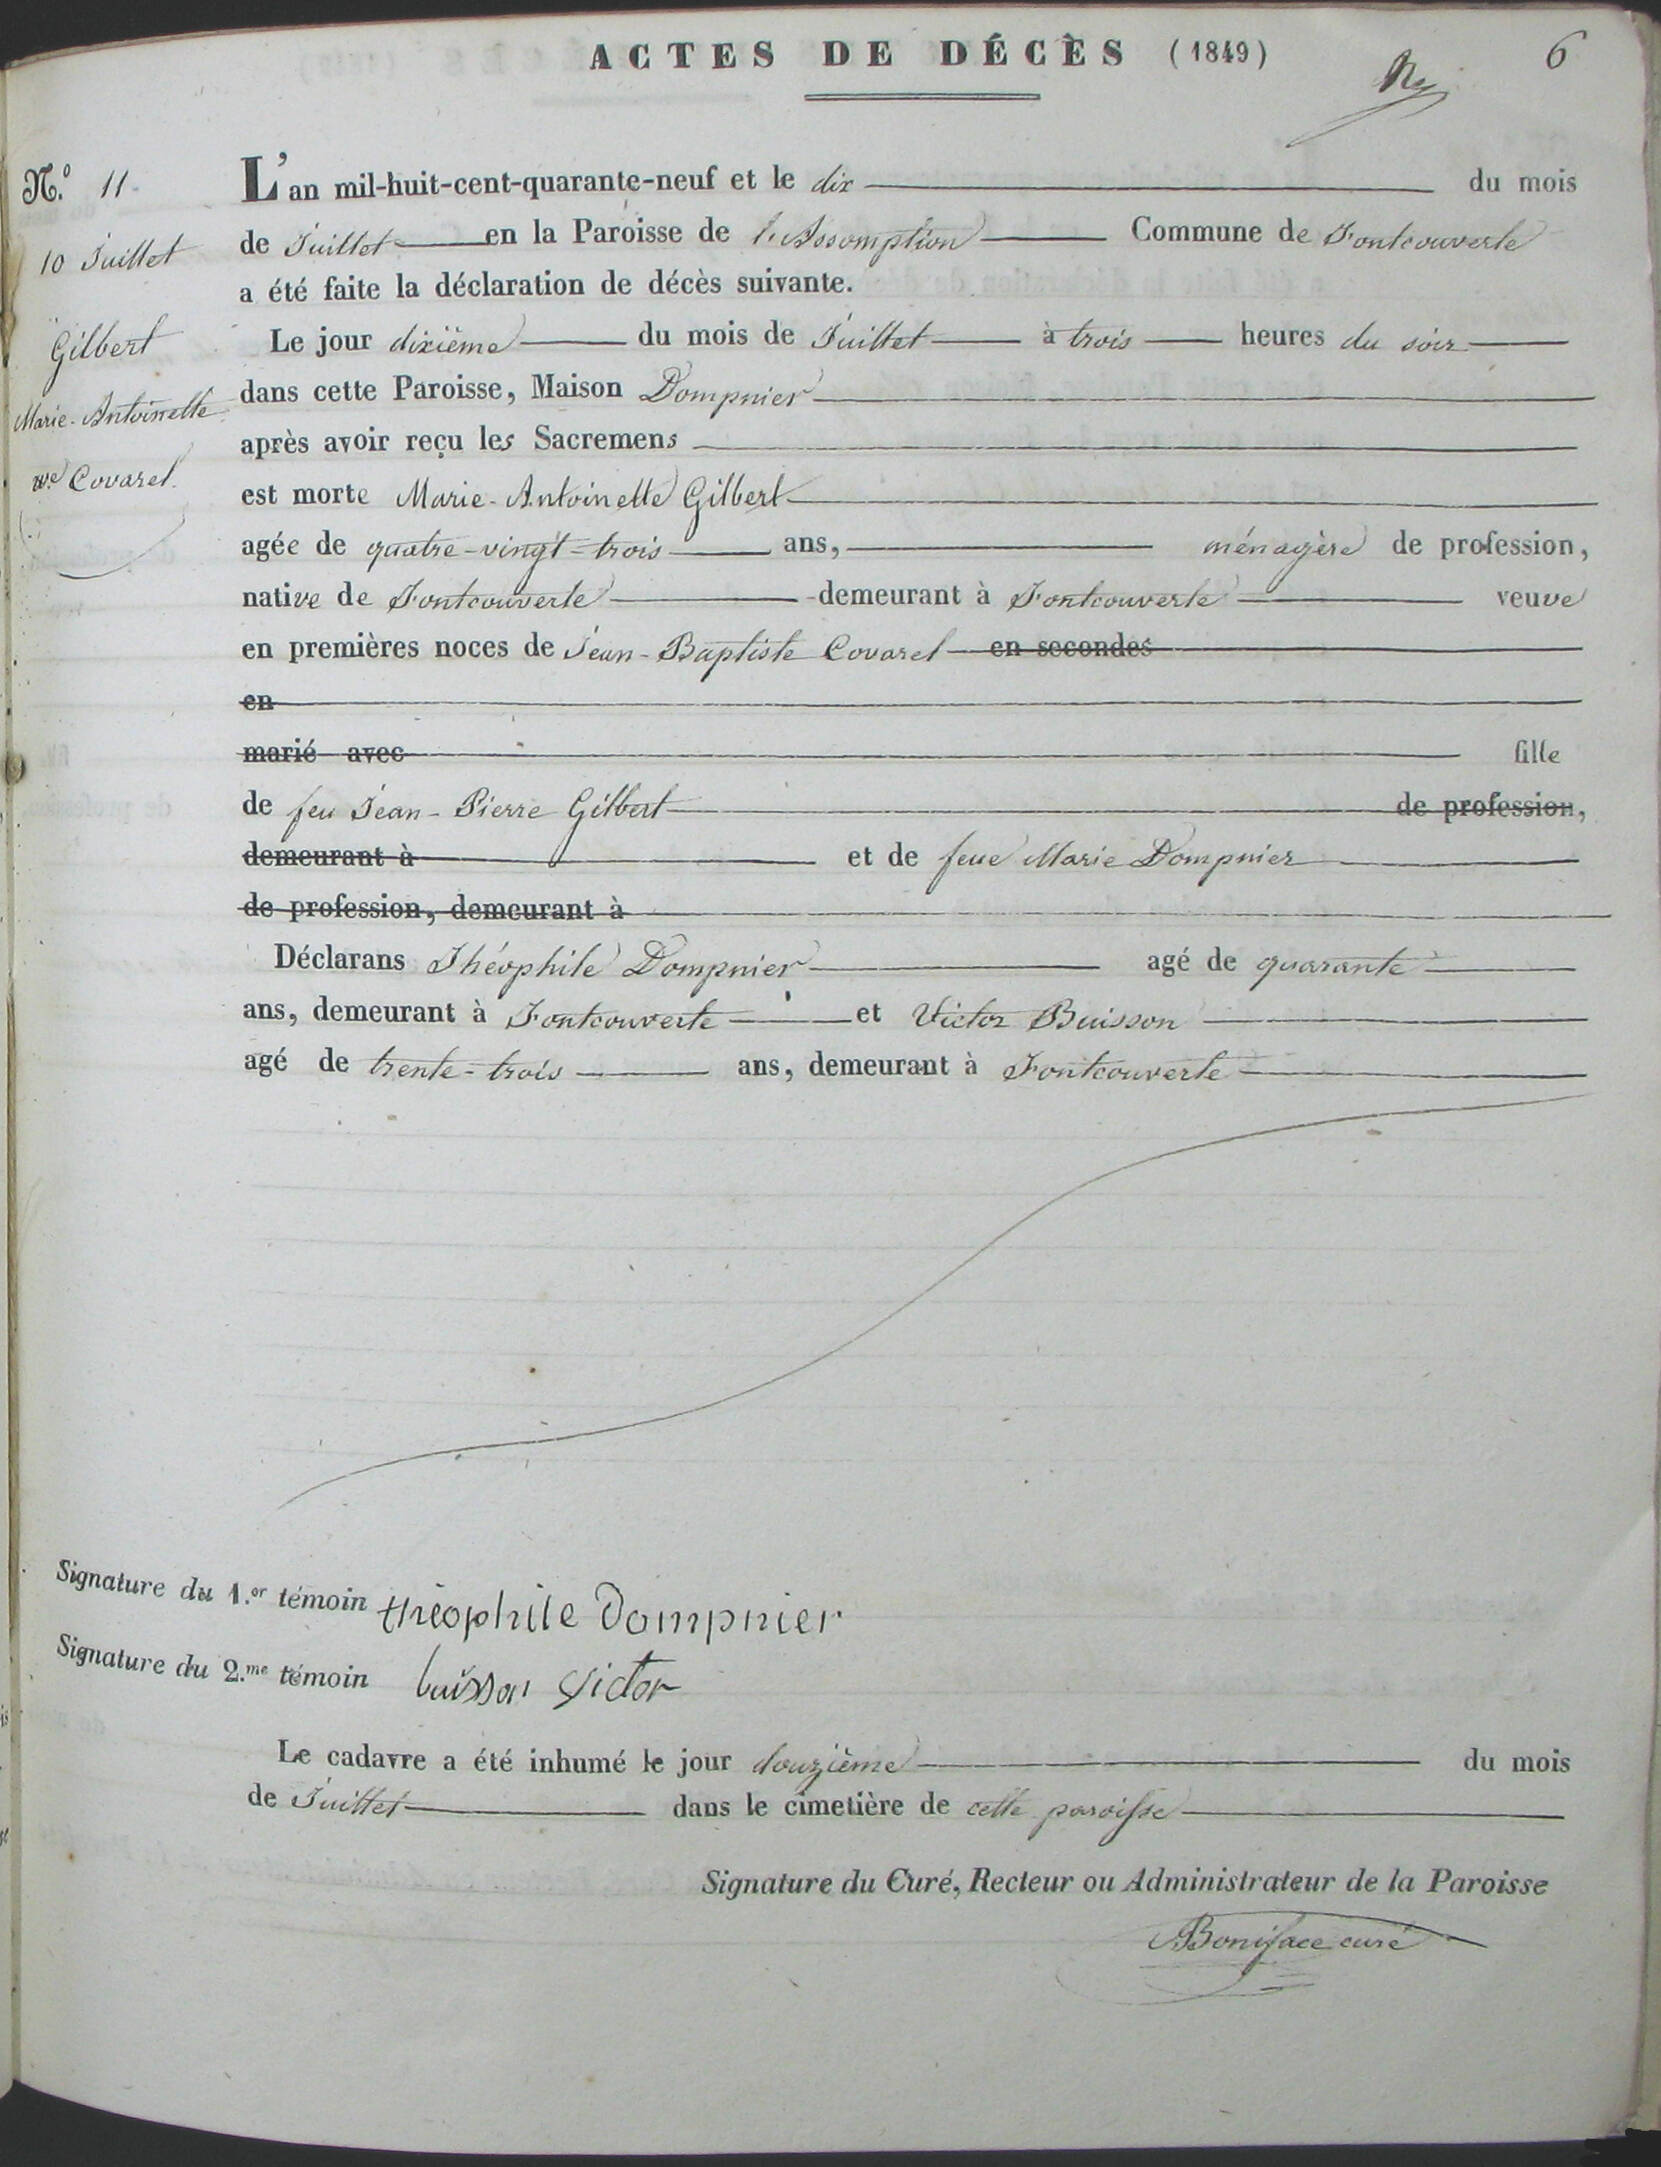 ACTES DE DÉCÈS (1849)
6
N.º 11.
10 Juillet
Gilbert
Marie-Antoinette
v.e Covarel.
L'an mil-huit-cent-quarante-neuf et le dix du mois
de Juillet en la Paroisse de l'Assomption Commune de Fontcouverte
a été faite la déclaration de décès suivante.
Le jour dixième du mois de Juillet à trois heures du soir
dans cette Paroisse, Maison Dompnier
après avoir reçu les Sacremens
est morte Marie-Antoinette Gilbert
agée de quatre-vingt-trois ans, ménagère de profession,
native de Fontcouverte demeurant à Fontcouverte veuve
en premières noces de Jean-Baptiste Covarel en secondes
en
marié avec fille
de feu Jean-Pierre Gilbert de profession,
demeurant à et de feue Marie Dompnier
de profession, demeurant à
Déclarans Théophile Dompnier agé de quarante
ans, demeurant à Fontcouverte et Victor Buisson
agé de trente-trois ans, demeurant à Fontcouverte
Signature du 1.er témoin théophile Dompnier
Signature du 2.me témoin buisson victor
Le cadavre a été inhumé le jour douzième du mois
de Juillet dans le cimetière de cette paroisse
Signature du Curé, Recteur ou Administrateur de la Paroisse
Boniface curé